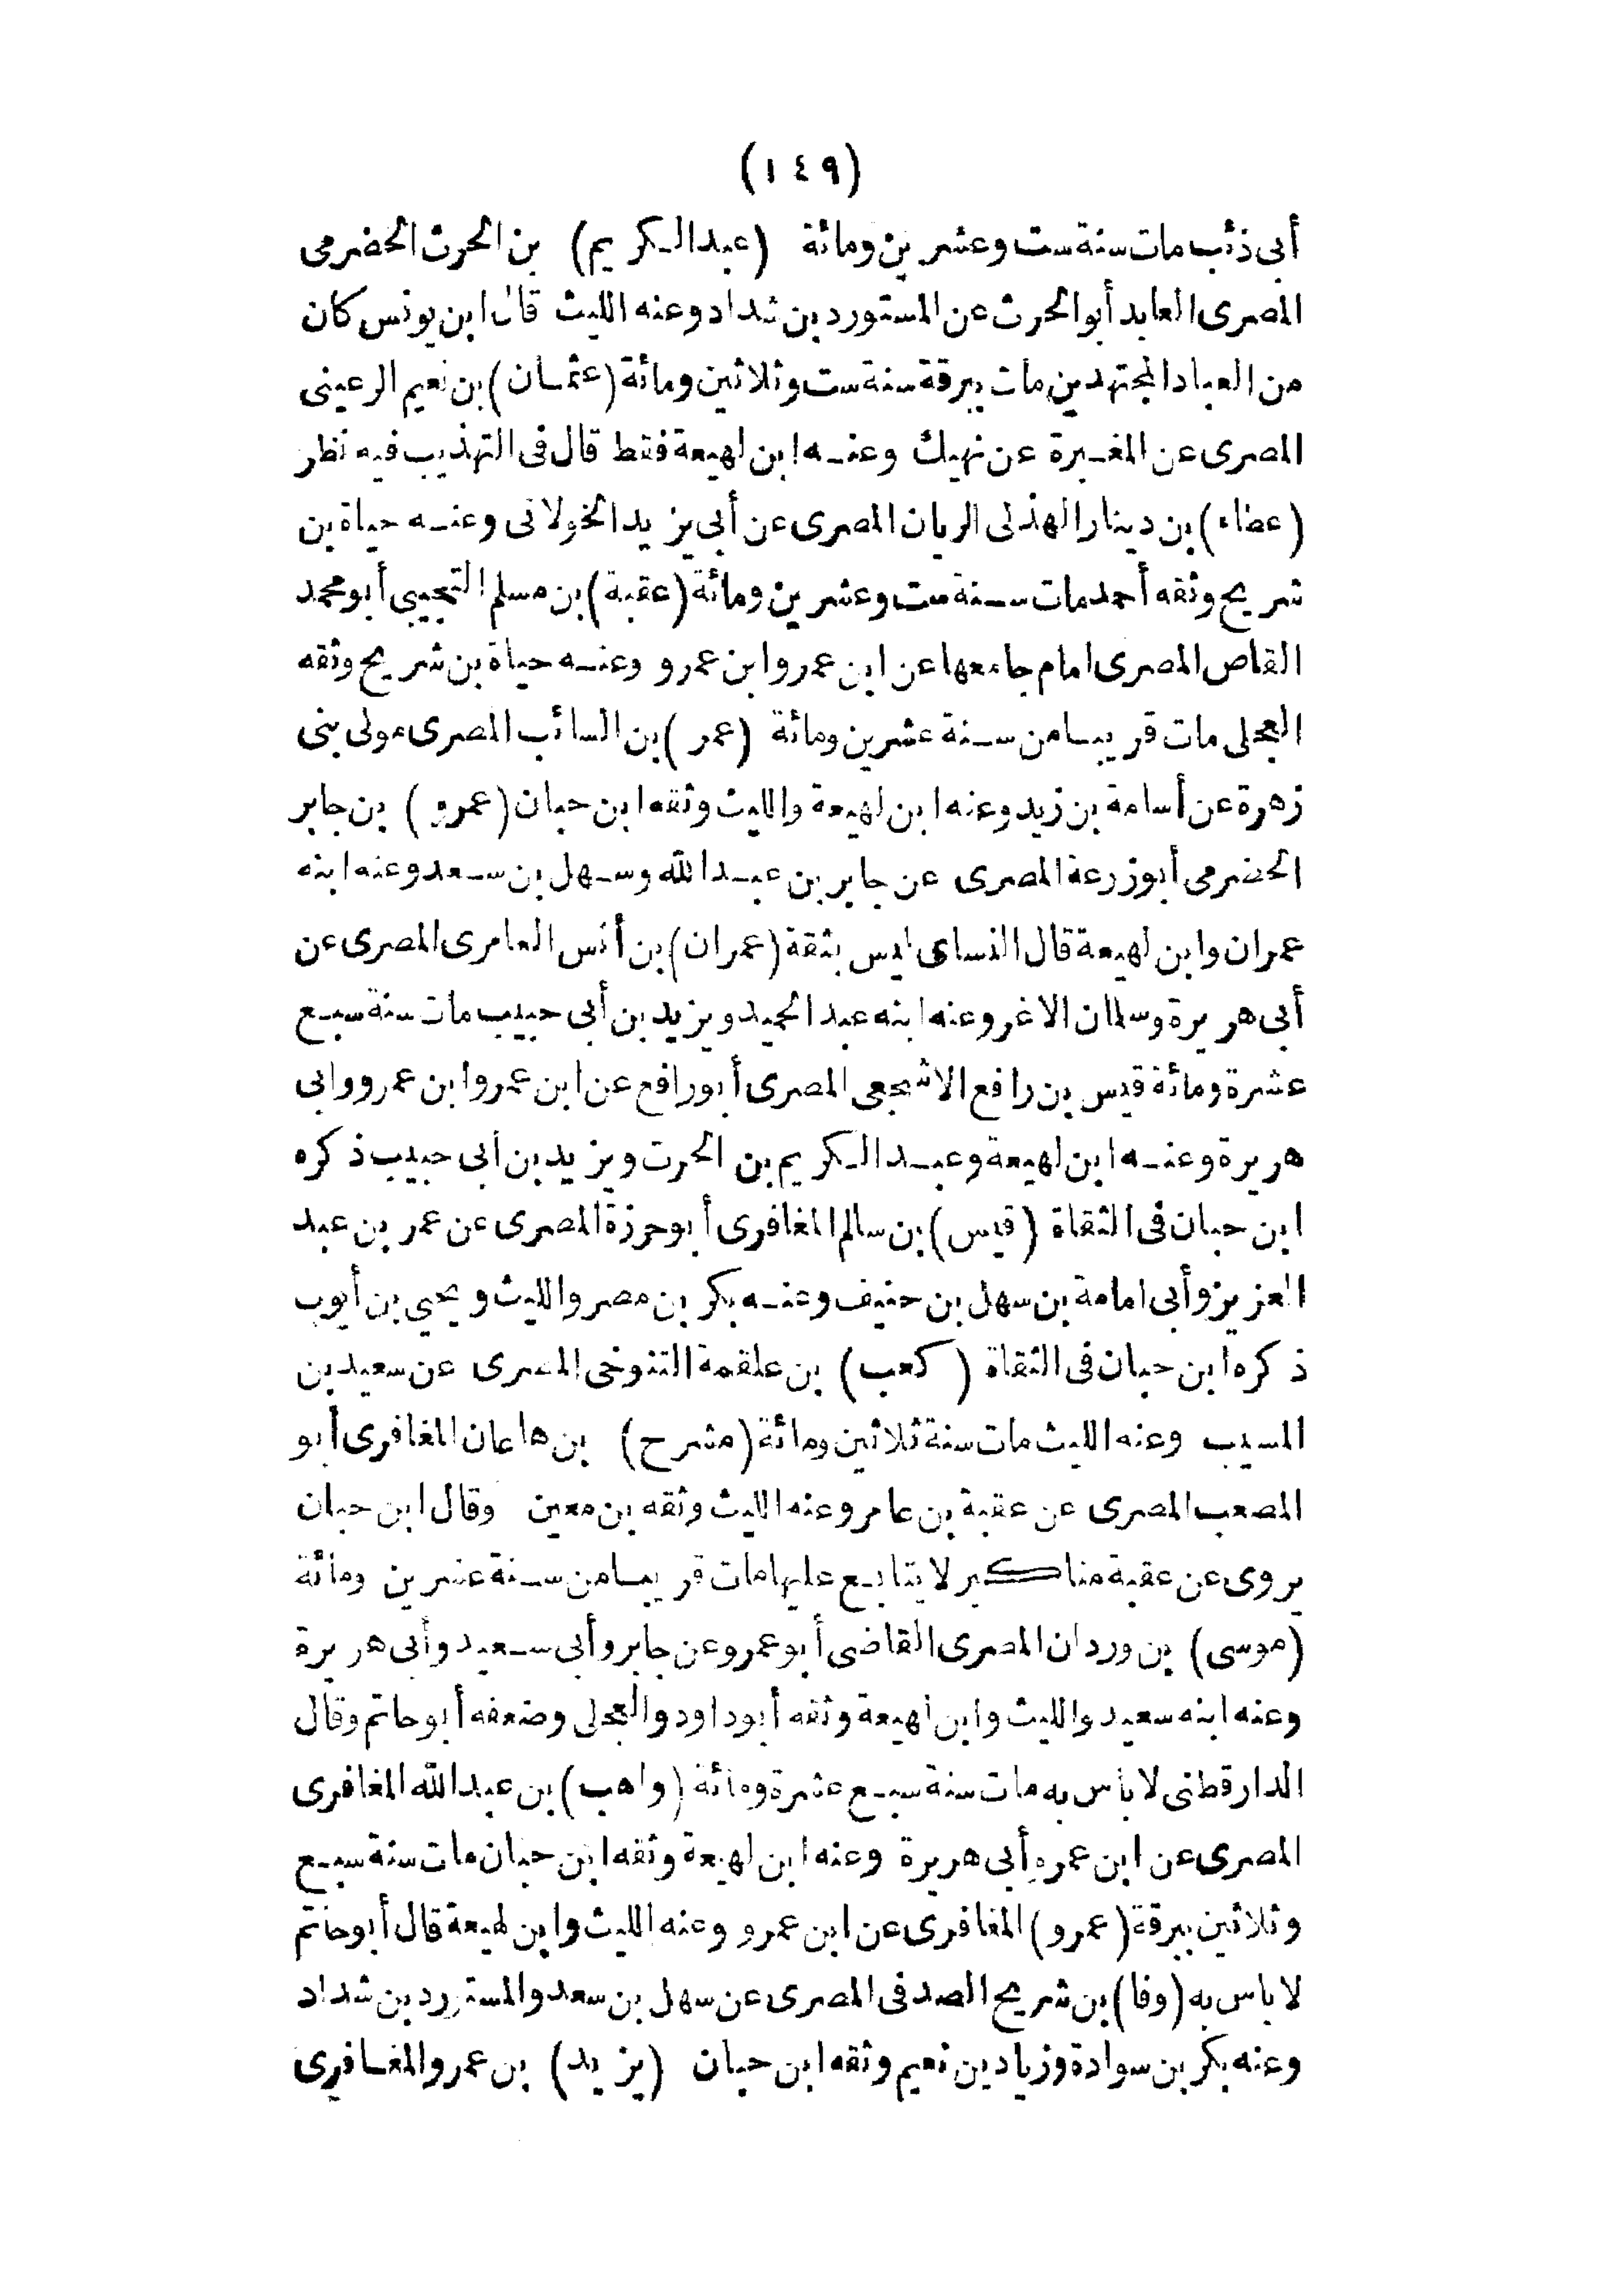 (١٤٩)
أبى ذئب مات سنة ست وعشرين ومائة (عبد الكريم) بن الحرث الحضرمى
المصرى العابد أبو الحرث عن المستورد بن شداد وعنه الليث قال ابن يونس كان
من العباد المجتهدين مات ببرقة سنة ست وثلاثين ومائة (عثمان) بن نعيم الرعينى
المصرى عن المغيرة عن نهيك وعنه ابن لهيعة فقط قال فى التهذيب فيه نظر
(عطاء) بن دينار الهذلى الريان المصرى عن أبى يزيد الخولانى وعنه حياة بن
شريح وثقه أحمد مات سنة ست وعشرين ومائة (عقبة) بن مسلم التجيبى أبو محمد
القاص المصرى امام جامعها عن ابن عمر وابن عمرو وعنه حياة بن شريح وثقه
العجلى مات قريبا من سنة عشرين ومائة (عمر) بن السائب المصرى مولى بنى
زهرة عن أسامة بن زيد وعنه ابن لهيعة والليث وثقه ابن حبان (عمرو) بن جابر
الحضرمى أبو زرعة المصرى عن جابر بن عبد الله وسهل بن سعد وعنه ابنه
عمران وابن لهيعة قال النساى ليس بثقة (عمران) بن أنس العامرى المصرى عن
أبى هريرة وسلمان الاغر وعنه ابنه عبد الحميد ويزيد بن أبى حبيب مات سنة سبع
عشرة ومائة قيس بن رافع الاشجعى المصرى أبو رافع عن ابن عمر وابن عمرو وابى
هريرة وعنه ابن لهيعة وعبد الكريم بن الحرث ويزيد بن أبى حبيب ذكره
ابن حبان فى الثقاة (قيس) بن سالم المغافرى أبو حرزة المصرى عن عمر بن عبد
العزيز وأبى امامة بن سهل بن حنيف وعنه بكر بن مصر والليث ويحيى بن أيوب
ذكره ابن حبان فى الثقاة (كعب) بن علقمة التنوخى المصرى عن سعيد بن
المسيب وعنه الليث مات سنة ثلاثين ومائة (مشرح) بن هاعان المغافرى أبو
المصعب المصرى عن عقبة بن عامر وعنه الليث وثقه بن معين وقال ابن حبان
يروى عن عقبة مناكير لا يتابع عليها مات قريبا من سنة عشرين ومائة
(موسى) بن وردان المصرى القاضى أبو عمرو عن جابر وأبى سعيد وأبى هريرة
وعنه ابنه سعيد والليث وابن لهيعة وثقه أبو داود والعجلى وضعفه أبو حاتم وقال
الدارقطنى لا بأس به مات سنة سبع عشرة ومائة (واهب) بن عبد الله المغافرى
المصرى عن ابن عمر وأبى هريرة وعنه ابن لهيعة وثقه ابن حبان مات سنة سبع
وثلاثين ببرقة (عمرو) المغافرى عن ابن عمرو وعنه الليث وابن لهيعة قال أبو حاتم
لا باس به (وفا) بن شريح الصدفى المصرى عن سهل بن سعد والمستورد بن شداد
وعنه بكر بن سوادة وزياد بن نعيم وثقه ابن حبان (يزيد) بن عمرو المغافرى